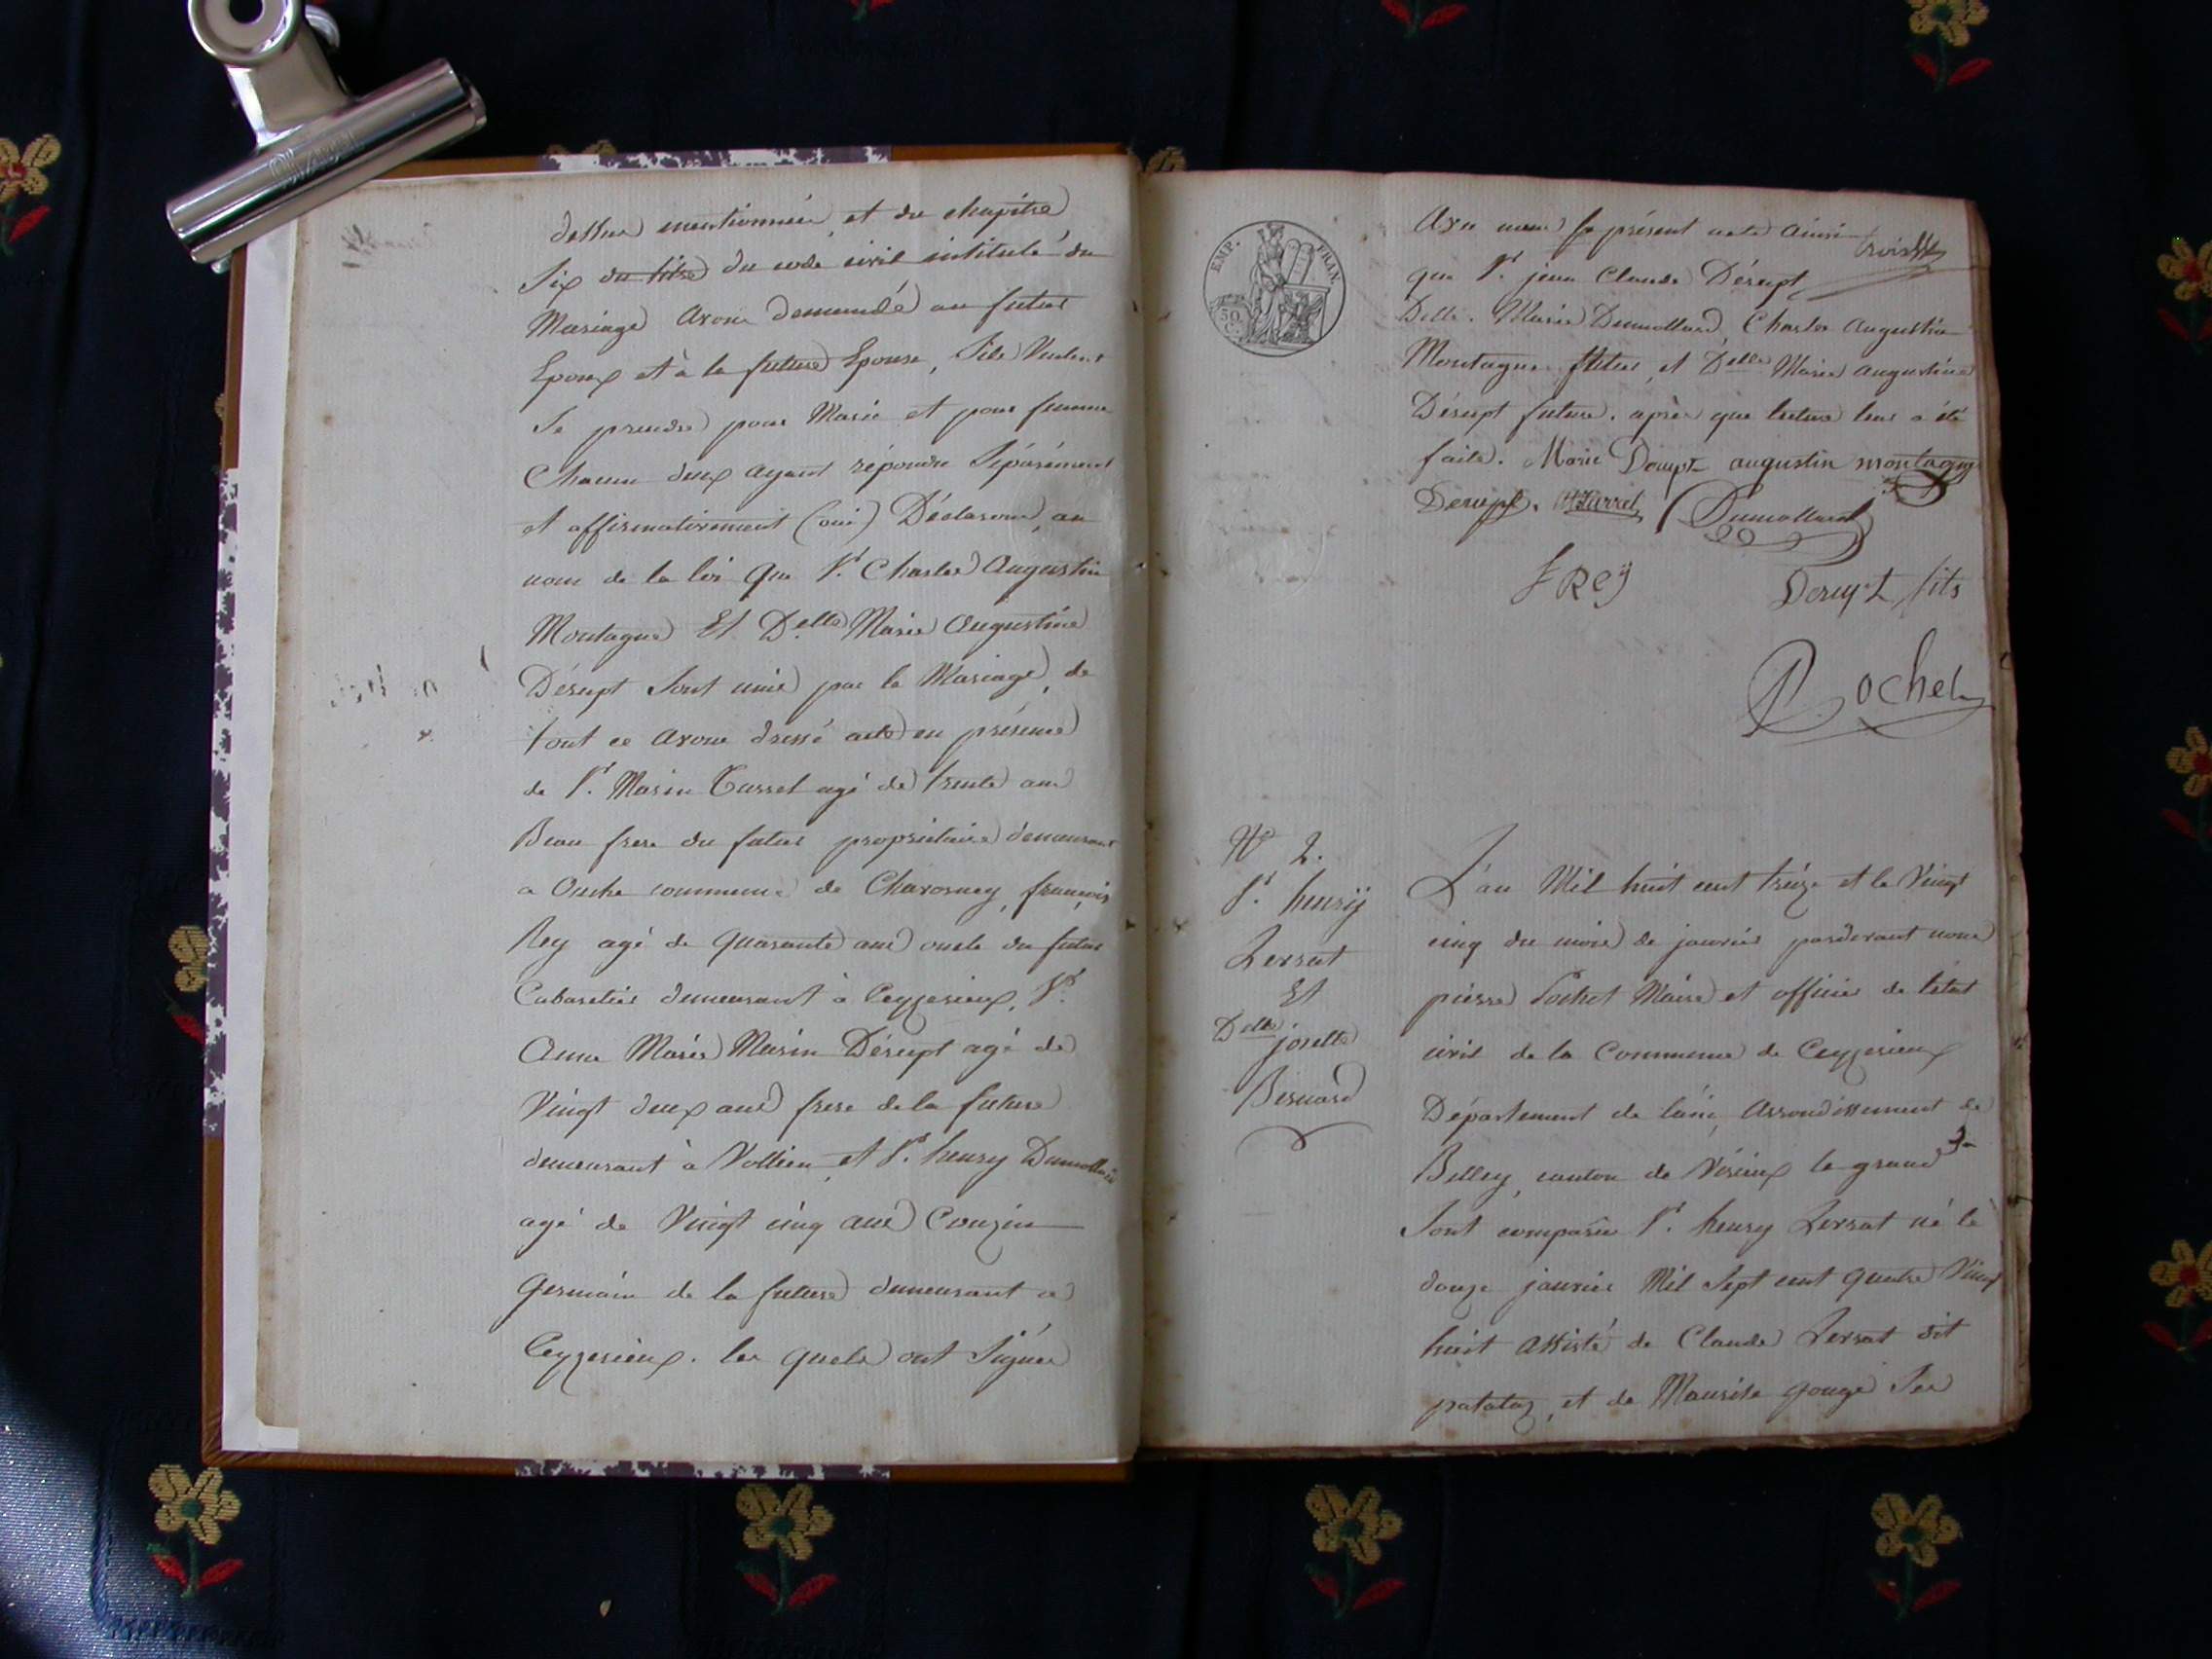 dessus mentionnée, et du chapitre
Six du titre du code civil intitulé du
Mariage avons demandé au futur
Epoux et à la future Epouse, Sils Veulent
Se prendre pour Marie et pour femme
Chacun deux ayant répondu Séparément
et affirmativement (oui) Déclarons, au
nom de la loi que Sr. Charles Augustin
Montagne Et Delle Marie Augustine
Dérupt Sont unis par le Mariage, de
tout ce avons dressé acte en présence
de Sr. Marin agé de trente ans
Beau frere du futur propriétaire demeurant
a commune de Chavornay, françois
Rey agé de quarante ans oncle du futur
Cabaretier demeurant à Ceyzerieux, Sr.
Marie Marin Dérupt agé de
Vingt deux ans frere de la future
demeurant à Vollien, et Sr. henry Dumollard
agé de Vingt cinq ans Couzin
germain de la future demeurant a
Ceyzerieux. les quels ont Signés
EMP. FRAN.
50 C.
Avec nous le présent acte ainsi
que Sr. jean Claude Dérupt
Delle. Marie Dumollard, Charles Augustin
Montagne futur, et Delle Marie augustine
Dérupt future. après que lecture leur a été
faite. Marie Derupt augustin montagne
Derupt. Dumollard
f Rey Derupt fils
Pochet
No 2.
Sr. henrÿ
Zersat
Et
Delle josette
Bernard
L'an Mil huit cent treize et le Vingt
cinq du mois de janvier pardevant nous
pierre Pochet Maire et officier de létat
civil de la Commune de Ceyzerieux
Département de lain, Arrondissement de
Belley, canton de Virieux le grand
Sont comparu Sr. henry Zersat né le
douze janvier Mil Sept cent quatre Vingt
huit assisté de Claude Zersat dit
patataz, et de Maurise gouge Ses